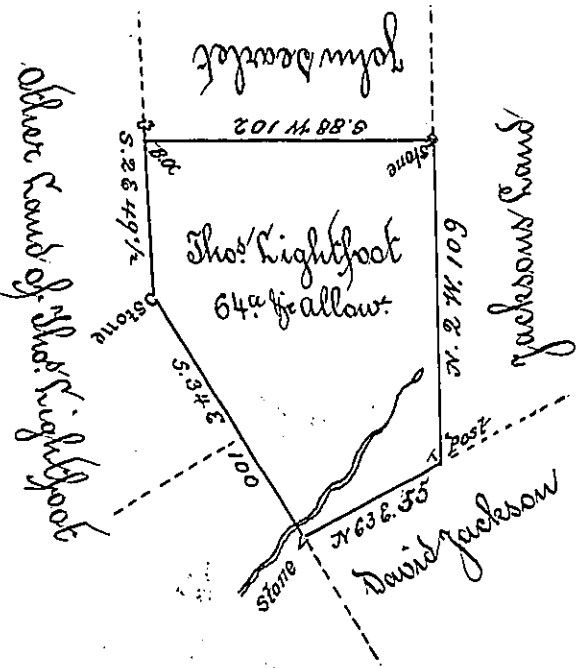 John Scarlet
S. 88 W 102
B.O.
Stone
S. 2 E 49 1/2
Other Land of Thos. Lightfoot
Thos. Lightfoot
64a. & allow.
N. 2. W. 109
Jacksons Land
Stone
S. 34 E
100
Post
N 63 E. 55
Stone
David Jackson